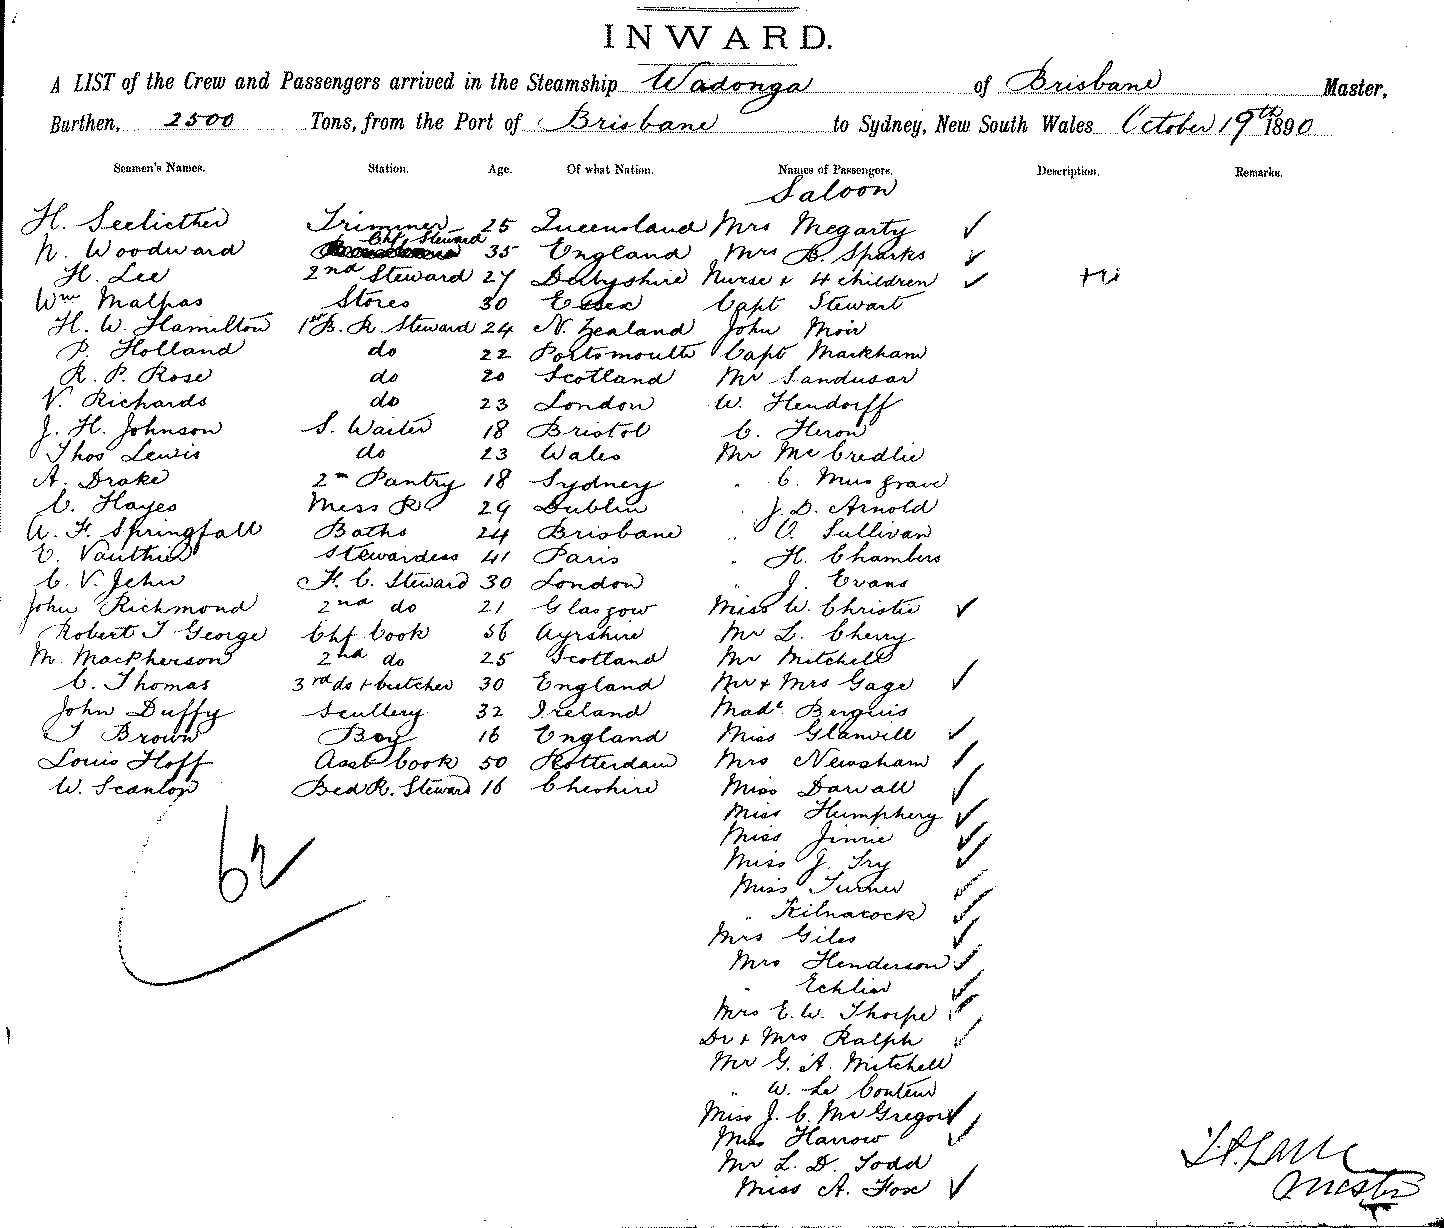 INWARD.
A LIST of the Crew and Passengers arrived in the Steamship Wodonga of Brisbane Master,
Burthen, 2500 Tons, from the Port of Brisbane to Sydney, New South Wales October 19th 1890
Seamen's Names. Station. Age. Of what Nation. Names of Passengers. Description. Remarks.
Saloon
H. Seelicther Trimmer 25 Queensland Mrs Megarty ✓
N. Woodward Chf Steward 35 England Mrs B. Sparks ✓
H. Lee 2nd Steward 27 Derbyshire Nurse & 4 children ✓
Wm Malpas Stores 30 Essex Capt Stewart
H. W. Hamilton 1st B. R. Steward 24 N. Zealand John Moir
P. Holland do 22 Portsmouth Capt Markham
R. P. Rose do 20 Scotland Mr Sandusar
V. Richards do 23 London W. Hendorff
J. H. Johnson S. Waiter 18 Bristol C. Heron
Thos Lewis do 23 Wales Mr McCredlie
A. Drake 2nd Pantry 18 Sydney " C. Musgrave
C. Hayes Mess R 29 Dublin " J. D. Arnold
A. F. Springfall Baths 24 Brisbane " O. Sullivan
E. Vauthier Stewardess 41 Paris " H. Chambers
C. V. Jehu F. C. Steward 30 London " J. Evans
John Richmond 2nd do 21 Glasgow Miss W. Christie ✓
Robert T George Chf Cook 56 Ayrshire Mr L. Cherry
M. MacPherson 2nd do 25 Scotland Mr Mitchell
C. Thomas 3rd do & butcher 30 England Mr & Mrs Gage ✓
John Duffy Scullery 32 Ireland Madle Berguis
T Brown Boy 16 England Miss Glanvill ✓
Louis Hoff Asst Cook 50 Rotterdam Mrs Newsham ✓
W. Scanlon Bed R. Steward 16 Cheshire Miss Darvall ✓
Miss Humphery ✓
Miss Jinnie ✓
Miss J. Try ✓
Miss Turner ✓
" Kilnacock ✓
Mrs Giles ✓
Mrs Henderson ✓
" Echlin ✓
Mrs E. W. Thorpe ✓
Dr & Mrs Ralph ✓
Mr G. A. Mitchell
" W. Le Couteur
Miss J. C. McGregor ✓
Miss Harrow ✓
Mr L. D. Todd
Miss A. Fox ✓
62
Master